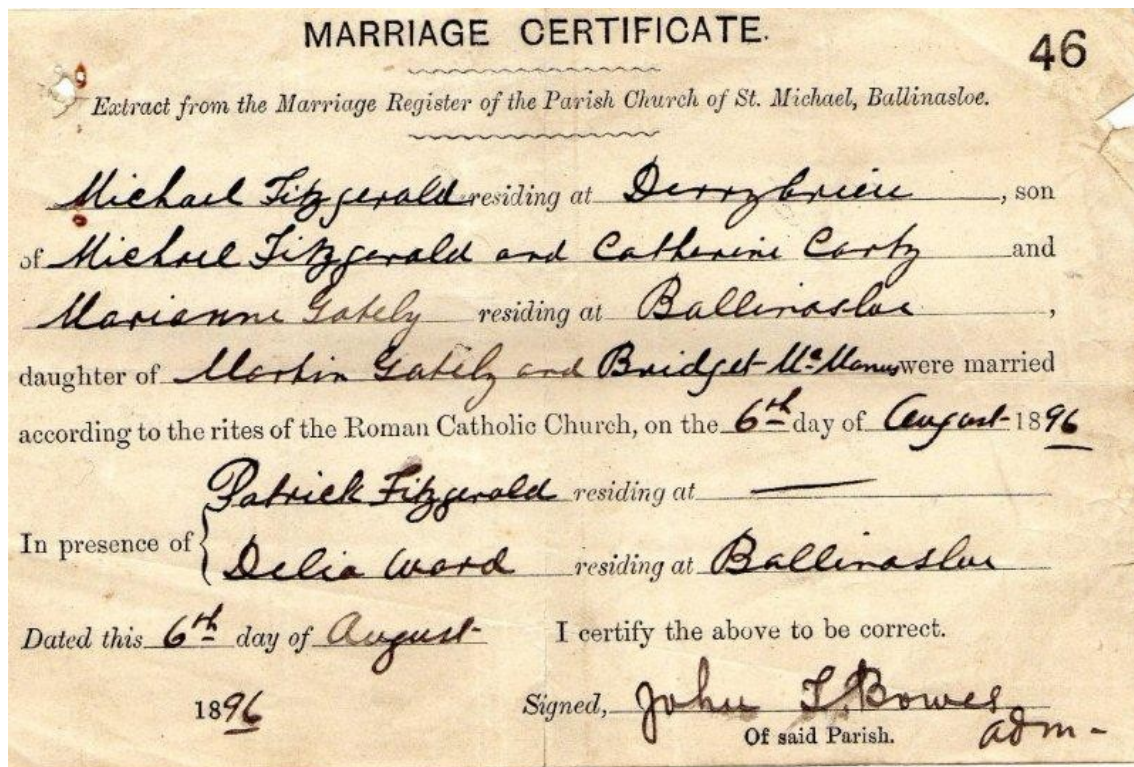 MARRIAGE CERTIFICATE.
46
Extract from the Marriage Register of the Parish Church of St. Michael, Ballinasloe.
Michael Fitzgerald residing at Derrybrien, son
of Michael Fitzgerald and Catherine Carty and
Marianne Gately residing at Ballinasloe,
daughter of Martin Gately and Bridget McManus were married
according to the rites of the Roman Catholic Church, on the 6th day of August 1896
Patrick Fitzgerald residing at —
In presence of
Delia Ward residing at Ballinasloe
Dated this 6th day of August I certify the above to be correct.
1896 Signed, John T. Bowes
Of said Parish. adm-